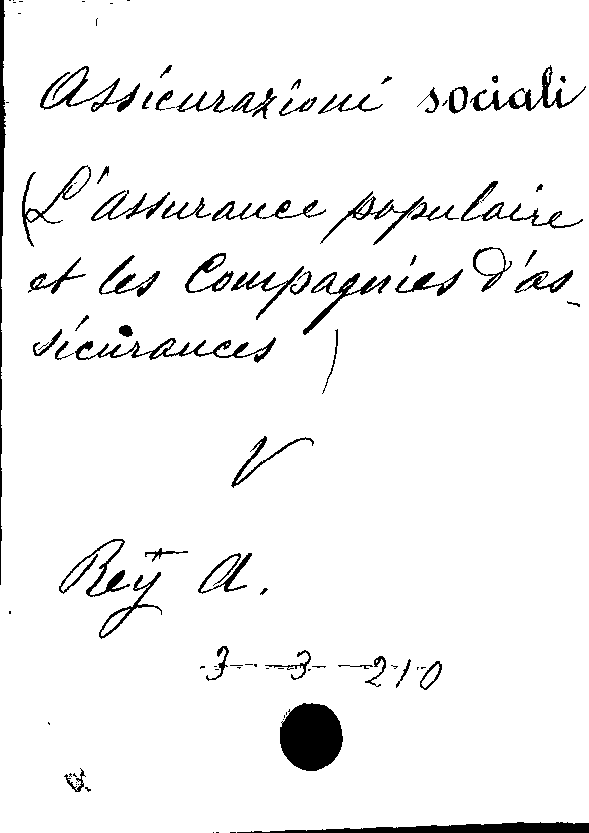 Assicurazioni sociali
(L'assurance populaire
et les Compagnies d'as-
sicurances)
V
Rey A.
3-3-210